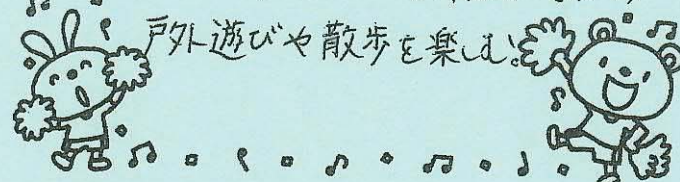 戸外遊びや散歩を楽しむ。